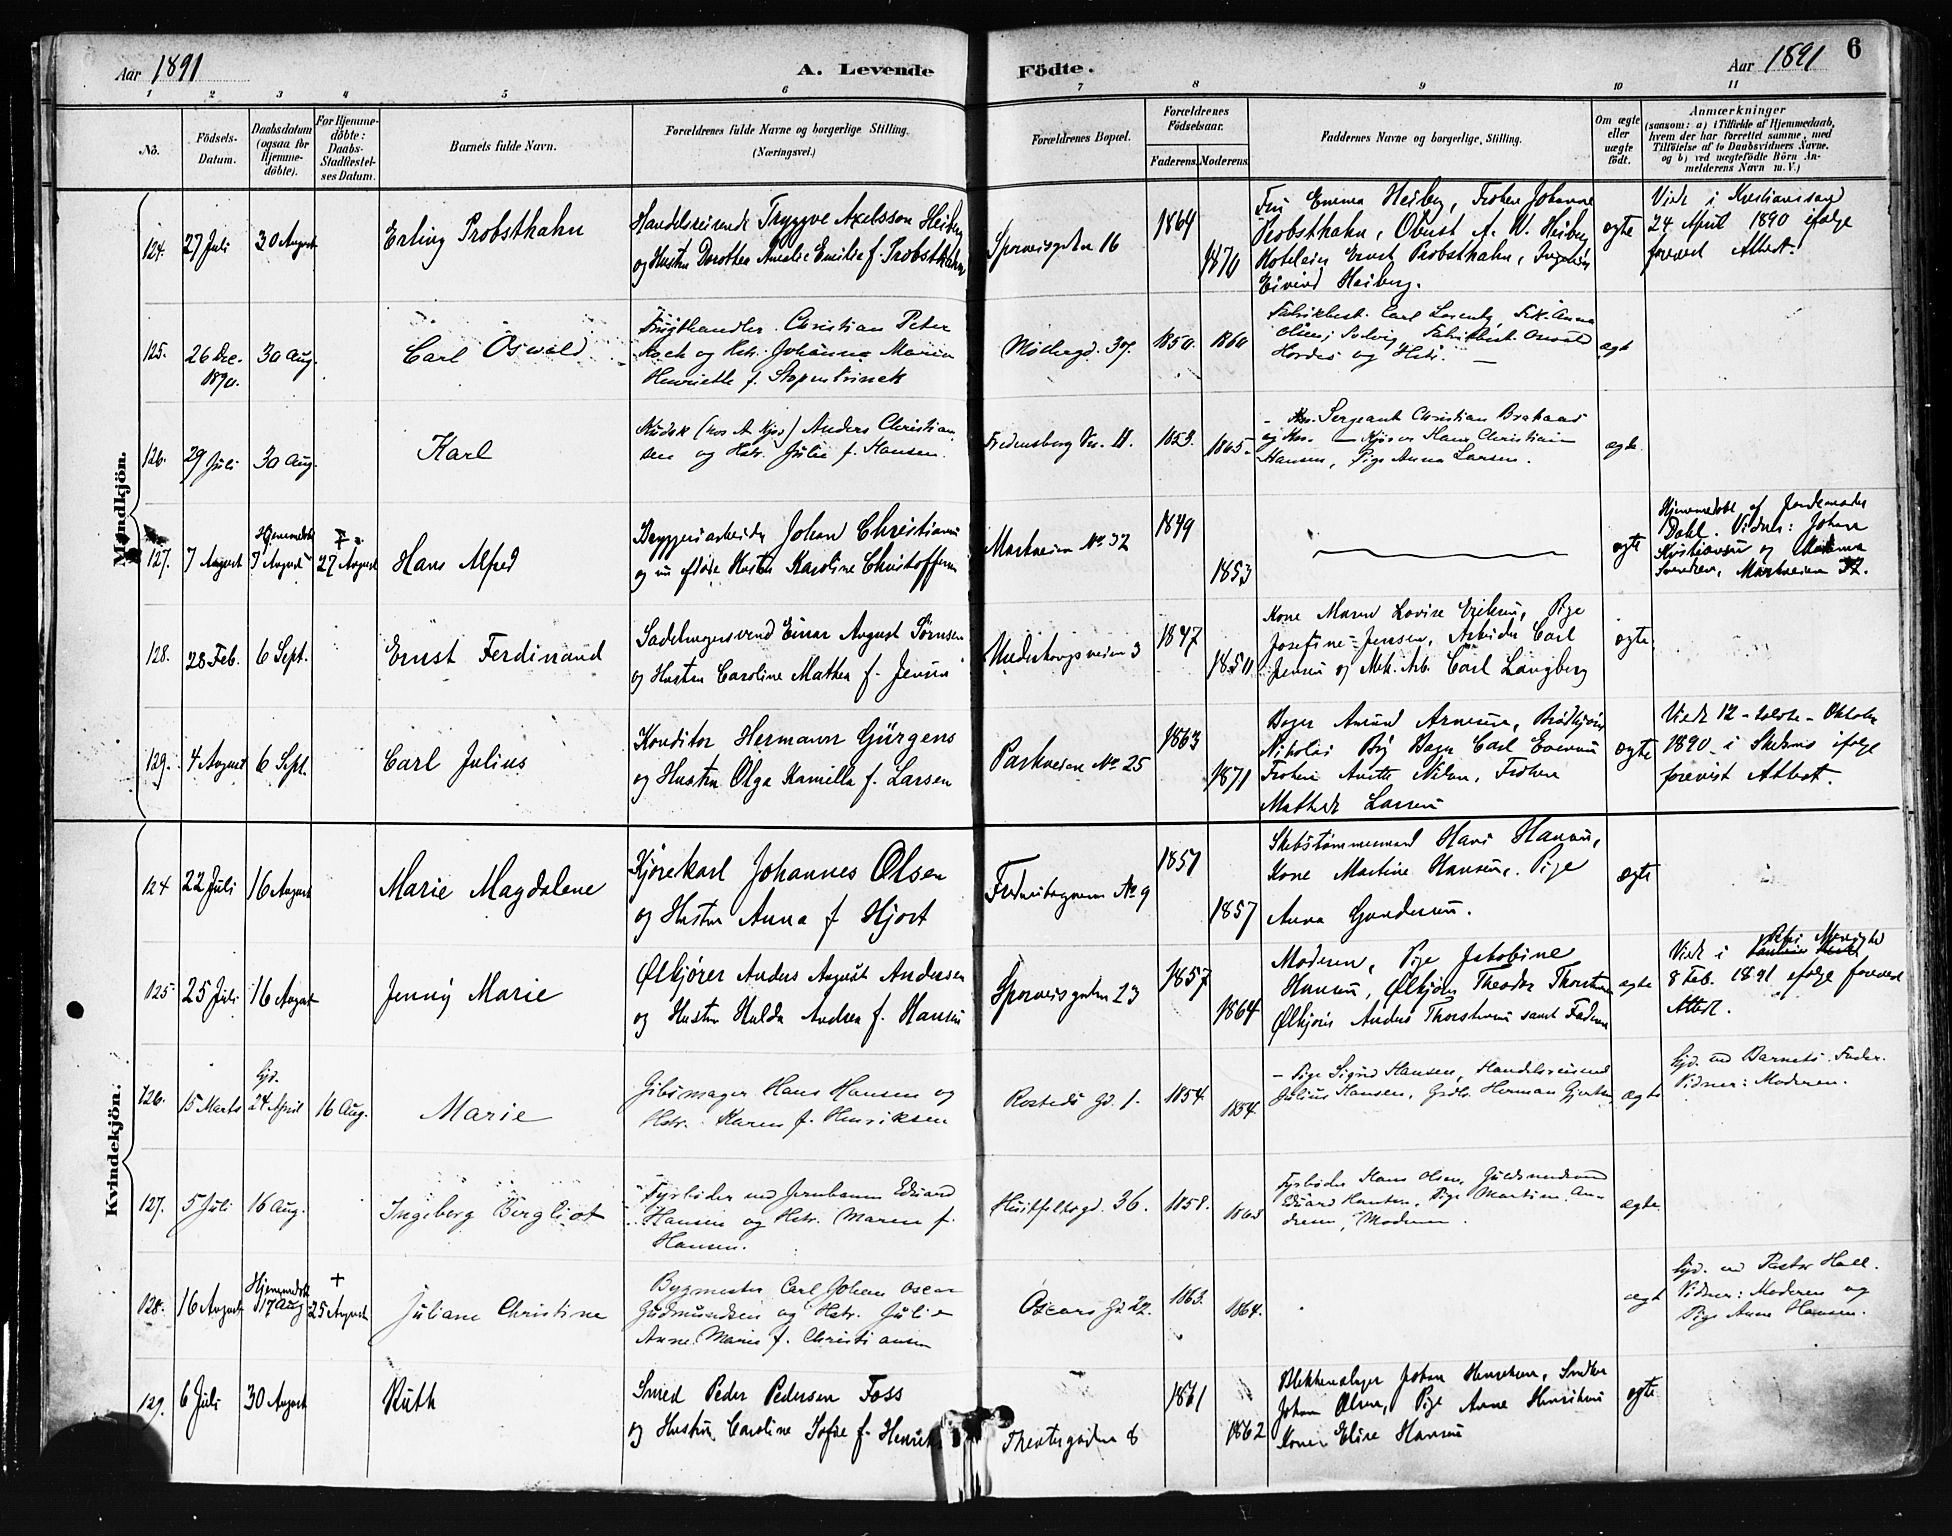 Aar 1891
A. Levende
Födte.
Aar 1891
6
1 2 3 4 5 6 7 8 9 10 11
No.
Födsels-Datum.
Daabsdatum (ogsaa for Hjemme-döbte).
For Hjemme-döbte: Daabs-Stadfæstel-ses Datum.
Barnets fulde Navn.
Forældrenes fulde Navne og borgerlige Stilling.
(Næringsvei.)
Forældrenes Bopæl.
Forældrenes Födselsaar.
Faderens. Moderens.
Faddernes Navne og borgerlige Stilling.
Om ægte eller uægte födt.
Anmærkninger
(saasom: a) i Tilfælde af Hjemmedaab,
hvem der har forrettet samme, med
Tilföielse af to Daabsvidners Navne.
og b) ved uægtefödte Börn An-
melderens Navn m.V.)
Mandkjön.
124. 27 Juli 30 August Erling Probsthahn
Handelsreisende Tryggve Axelsson Heiberg
og Hustru Dorothea Amalie Emilie f. Probsthahn
Sporveisgaden 16 1864 1870
Fru Emma Heiberg, Frøken Johanne
Probsthahn, Oberst A. W. Heiberg
Hoteleier Ernst Probsthahn, Ingeniør
Eivind Heiberg.
ægte
Viede i Kristianssand
24 April 1890 ifølge
forevist Attest.
125. 26 Dec. 1890. 30 Aug. Carl Oswald
Frugthandler Christian Peter
Koch og Hstr. Johanne Marie
Henriette f.
Møllergd. 37. 1850. 1860
Fabrikbest. Carl Lorentz, Frk. Anna
Olsen,
og Hstr. —
ægte
126. 29 Juli 30 Aug. Karl
Kudsk Anders Christian-
sen og Hstr. Julie f. Hansen.
Fredensborg Vn. 11. 1853. 1865.
Sergeant Christian
og Kone — Hans Christian
Hansen, Pige Anna Larsen.
ægte
127. 7 August Hjemmedøbt 7 August 27 August Hans Alfred
Bryggeriarbeider Johan Christiansen
og Hustru Karoline Christoffersen
Markveien No 32 1849 1853
ægte
Hjemmedøbt af Jordemoder
Dahl. Vidner: Johan
Kristiansen og
Svendsen, Markveien 32.
128. 28 Feb. 6 Sept. Ernst Ferdinand
Sadelmagersvend Einar August Sørnsen
og Hustru Caroline Mathea f. Jensen
3 1847 1850
Kone Maren Lovise Eriksen, Pige
Josefine Jensen, Arbeider Carl
Jensen og Mek. Arb. Carl Langberg
ægte
129. 4 August 6 Sept. Carl Julius
Konditor Hermann Gürgens
og Hustru Olga Kamilla f. Larsen
Parkveien No 25 1863 1871
Bager Amund Arnesen, Brødkjører
Nikolai Bager Carl Evensen
Frøken Anette Nilsen, Frøken
Mathilde Larsen
ægte
Viede 12 - tolvte - Oktober
1890 i Skedsmo ifølge
forevist Attest.
Kvindekjön.
124 22 Juli 16 August Marie Magdalene
Kjørekarl Johannes Olsen
og Hustru Anna f. Hjort
No 9 1857 1857
Skibstømmermand Hans Hansen,
Kone Martine Hansen, Pige
Anna Gundersen.
ægte
125 25 Juli 16 August Jenny Marie
Ølkjører Anders August Andersen
og Hustru Hulda Andrea f. Hansen
Sporveisgaden 23 1857 1864
Moderen, Pige Jakobine
Hansen, Ølkjører Theodor Thorstensen
Ølkjører Anders Thorstensen samt Faderen
ægte
Viede i Petri Menighed
8 Feb. 1891 ifølge forevist
Attest.
126. 15 Marts hjd. 24 April 16 Aug. Marie
Gibsmager Hans Hansen og
Hstr. Karen f. Henriksen
Rosteds Gd. 1. 1854. 1854.
— Pige Sigrid Hansen, Handelsreisende
Julius Hansen, Herman
ægte
hjd. ved Barnets Fader.
Vidner: Moderen.
127. 5 Juli 16 Aug. Ingeborg Bergliot
Fyrbøder ved Jernbanen Edvard
Hansen og Hstr. Maren f.
Hansen.
Huitfeldtsgd. 36. 1858. 1863
Fyrbøder Hans Olsen, Guldsmedsvend
Edvard Hansen, Pige Martine An-
dersen, Moderen.
ægte
128. 16 August Hjemmedøbt 17 Aug + 25 August Juliane Christine
Bygmester Carl Johan Oscar
Gudmundsen og Hstr. Julie
Anne Marie f. Christiansen
Oscars Gd. 22. 1863. 1864.
ægte
hjd. ved Pastor Hall.
Vidner: Moderen og
Pige Anne Hansen.
129. 6 Juli 30 August Ruth
Smed Peder Pedersen Foss
og Hustru Caroline Sofie f.
Theatergaden 8 1861 1862
Blikkenslager Johan Henriksen, Snedker
Johan Olsen, Pige Anne Henriksen
Kone Elise Hansen
ægte